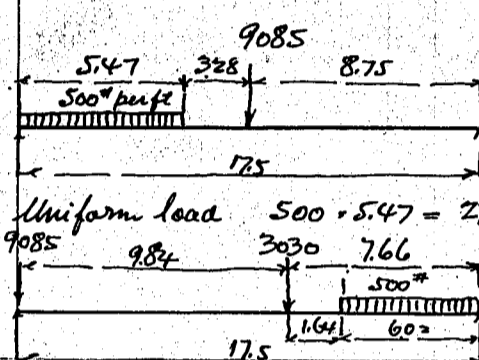 9085
5.47 3.28 8.75
500# per ft
17.5
Uniform load 500 · 5.47 = 2,
9085 9.84 3030 7.66
500#
1.64 602
17.5